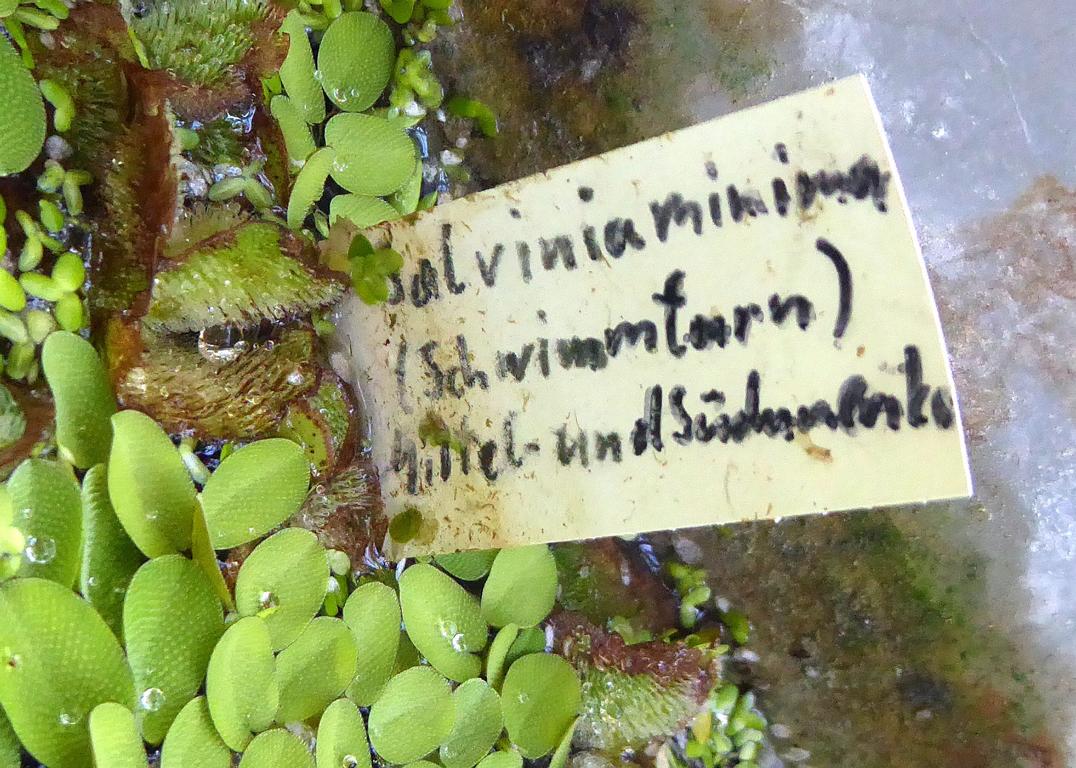 Salvinia minima
(Schwimmfarn)
Mittel- und Südamerika